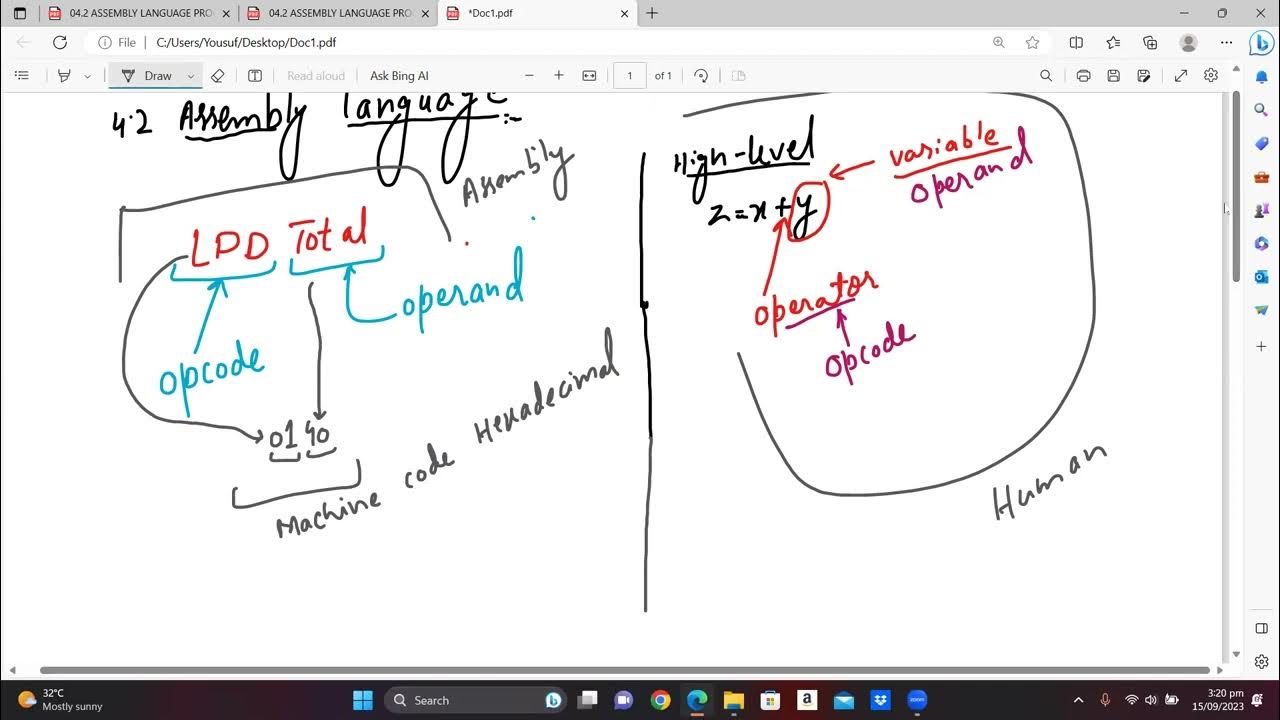 04.2 ASSEMBLY LANGUAGE PRO
04.2 ASSEMBLY LANGUAGE PRO
*Doc1.pdf
File
C:/Users/Yousuf/Desktop/Doc1.pdf
Draw
Read aloud
Ask Bing AI
1
of 1
4.2 Assembly language :-
Assembly
LDD Total
operand
opcode
01 40
Machine code Hexadecimal
High-level
z=x+y
variable
operand
operator
opcode
Human
32°C
Mostly sunny
Search
zoom
3:20 pm
15/09/2023